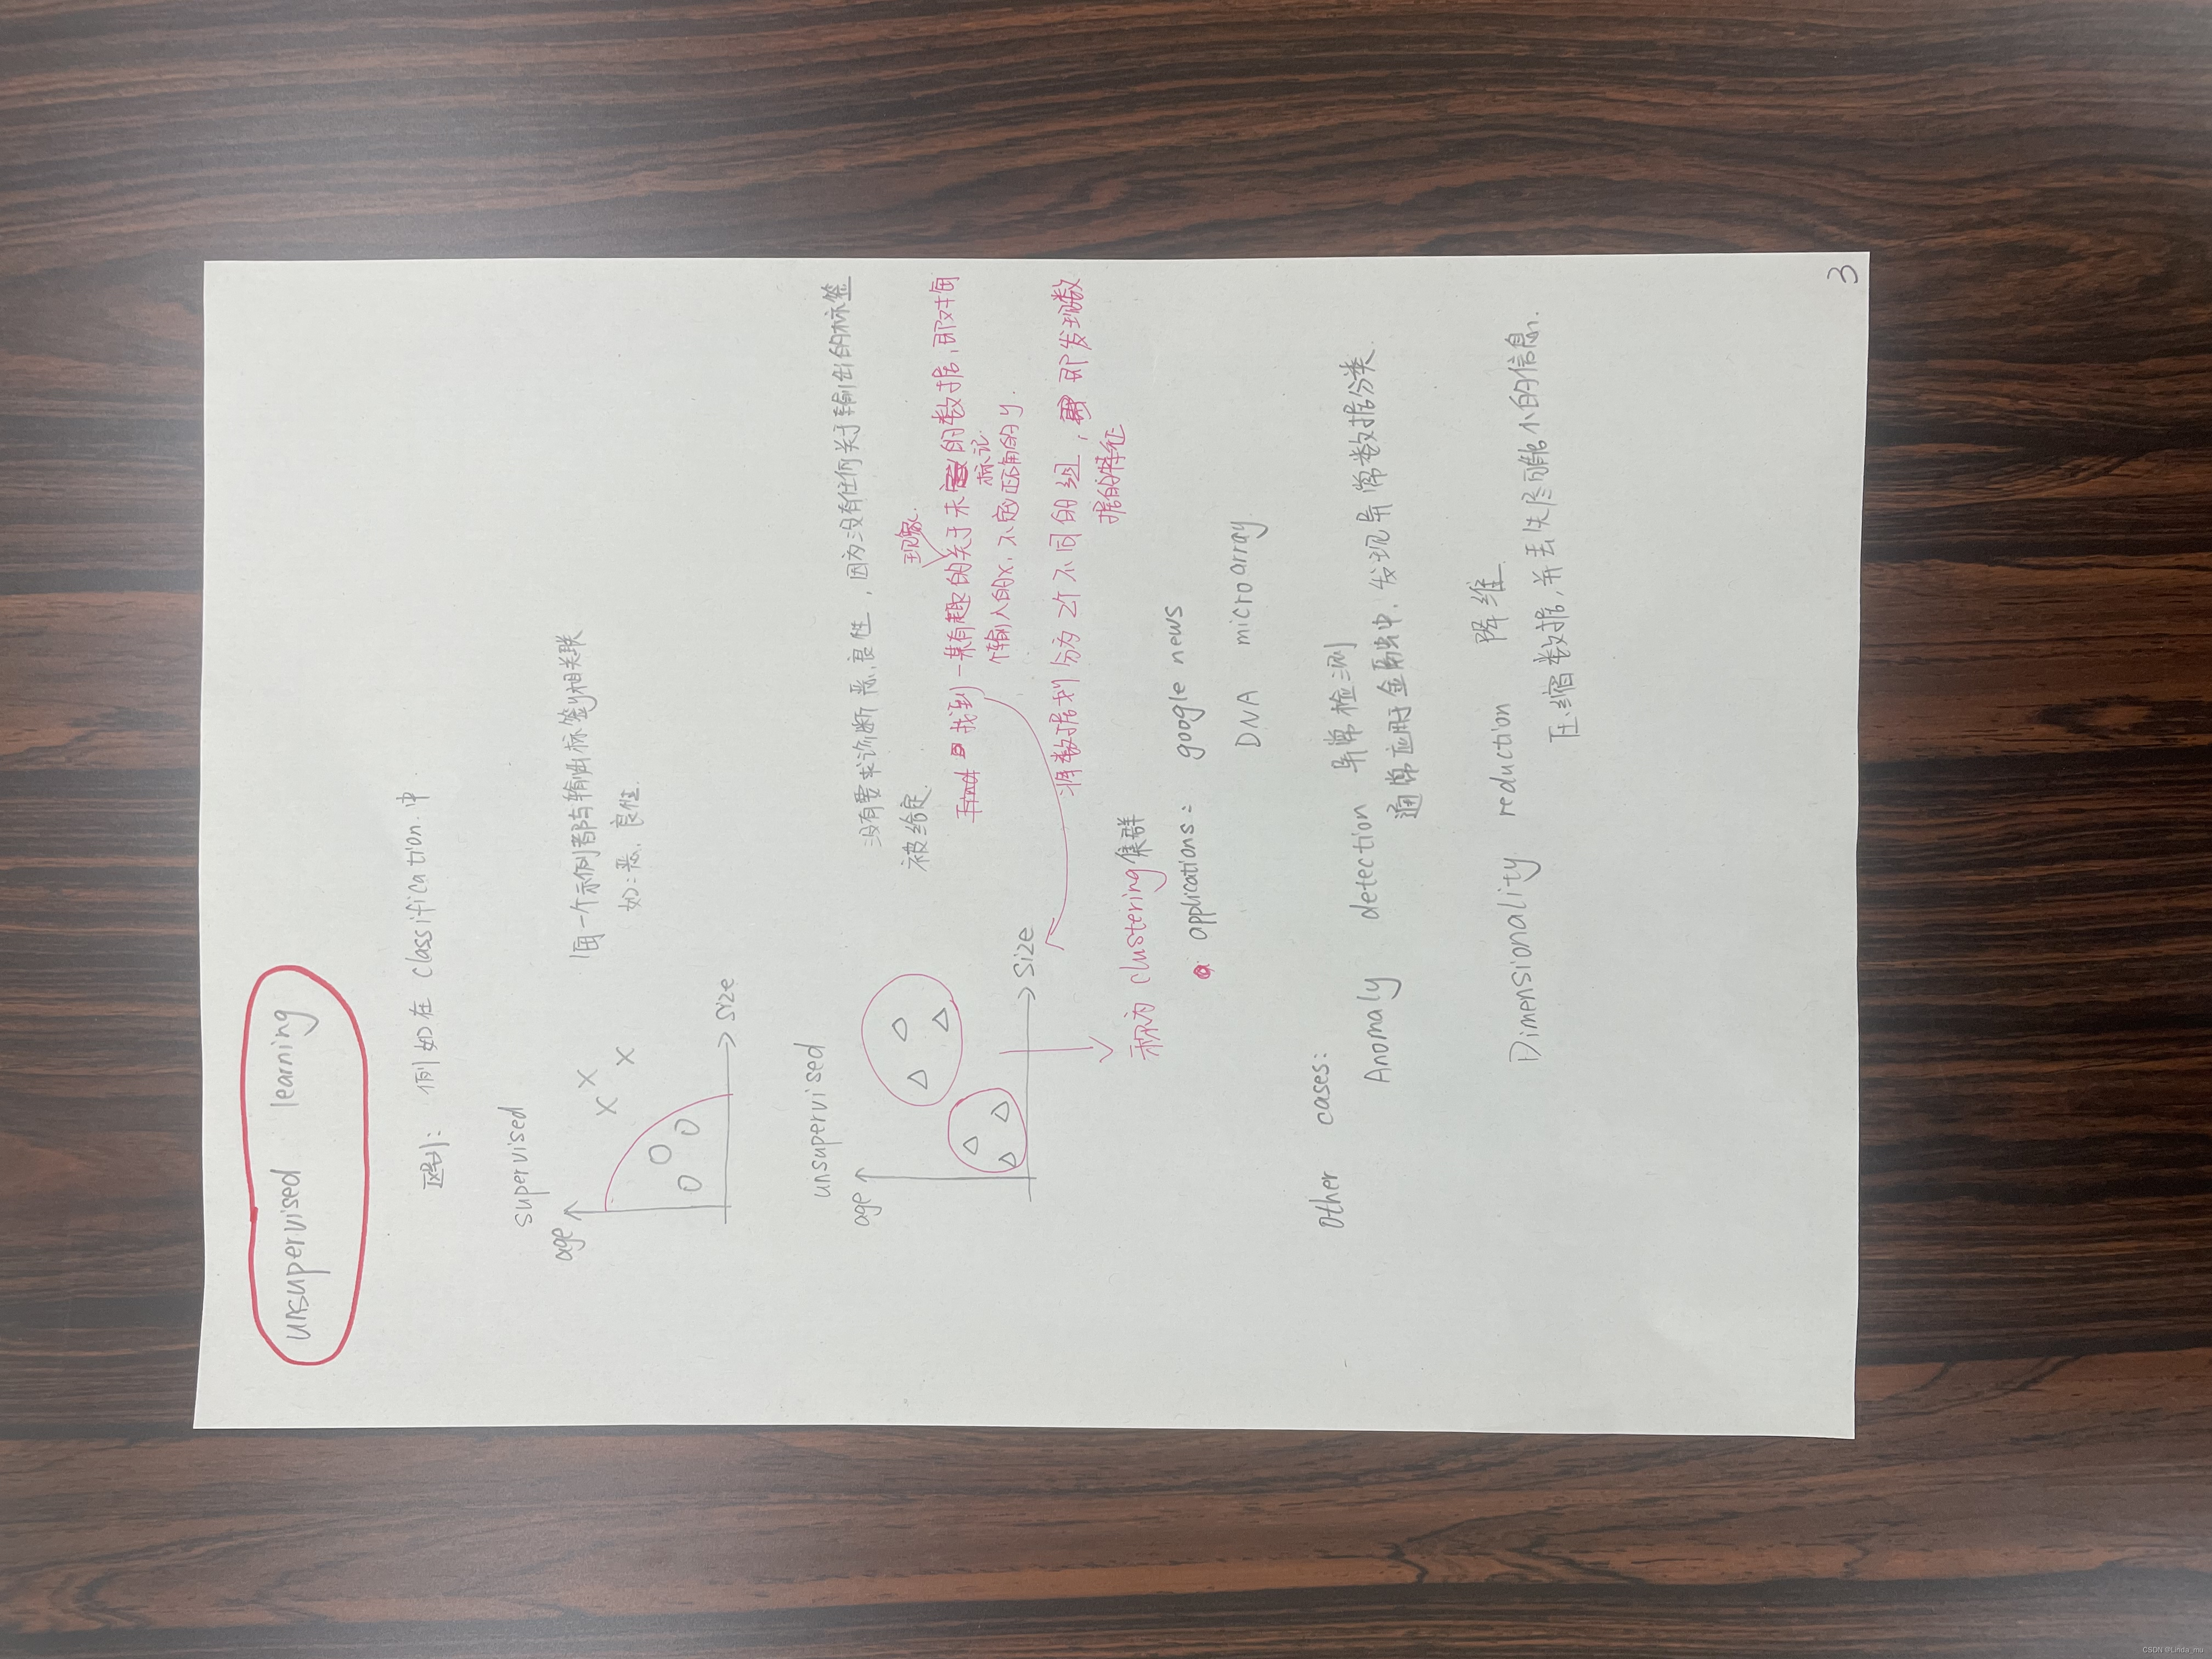 unsupervised learning
区别: 例如在 classification 中
supervised
age
X X X
O O O
size
每一个示例都与输出标签y相关联
如:恶、良性.
unsupervised
age
size
没有要求诊断恶、良性,因为没有任何关于输出的标签
被给定.
现象.
找到一某有趣的关于未的数据,即对每
标记
个输入的x,不定正确的y.
将数据划分为2个不同的组,即发现数
据的特征
称为 clustering 集群
applications: google news
DNA microarray
other cases:
Anomaly detection 异常检测
通常应用于金融中,发现异常数据分类.
Dimensionality reduction 降维.
压缩数据,并丢失尽可能小的信息.
3
CSDN @Linda_mu